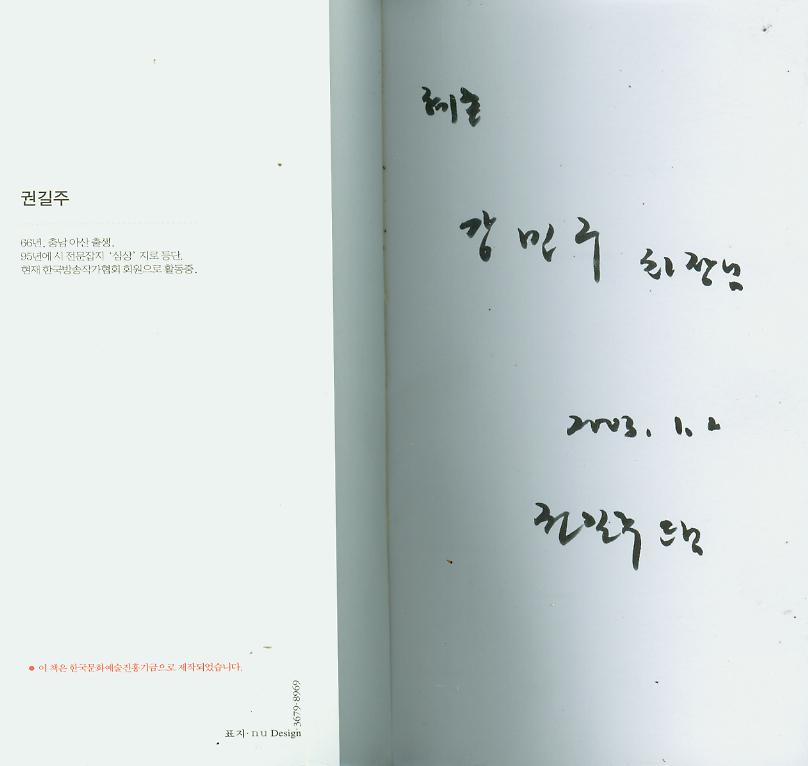 권길주
66년, 충남 아산 출생.
95년에 시 전문잡지 '심상' 지로 등단.
현재 한국방송작가협회 회원으로 활동중.
● 이 책은 한국문화예술진흥기금으로 제작되었습니다.
3679-8969
표지·nu Design
혜존
강민구 회장님
2003. 1. 2
권길주 드림